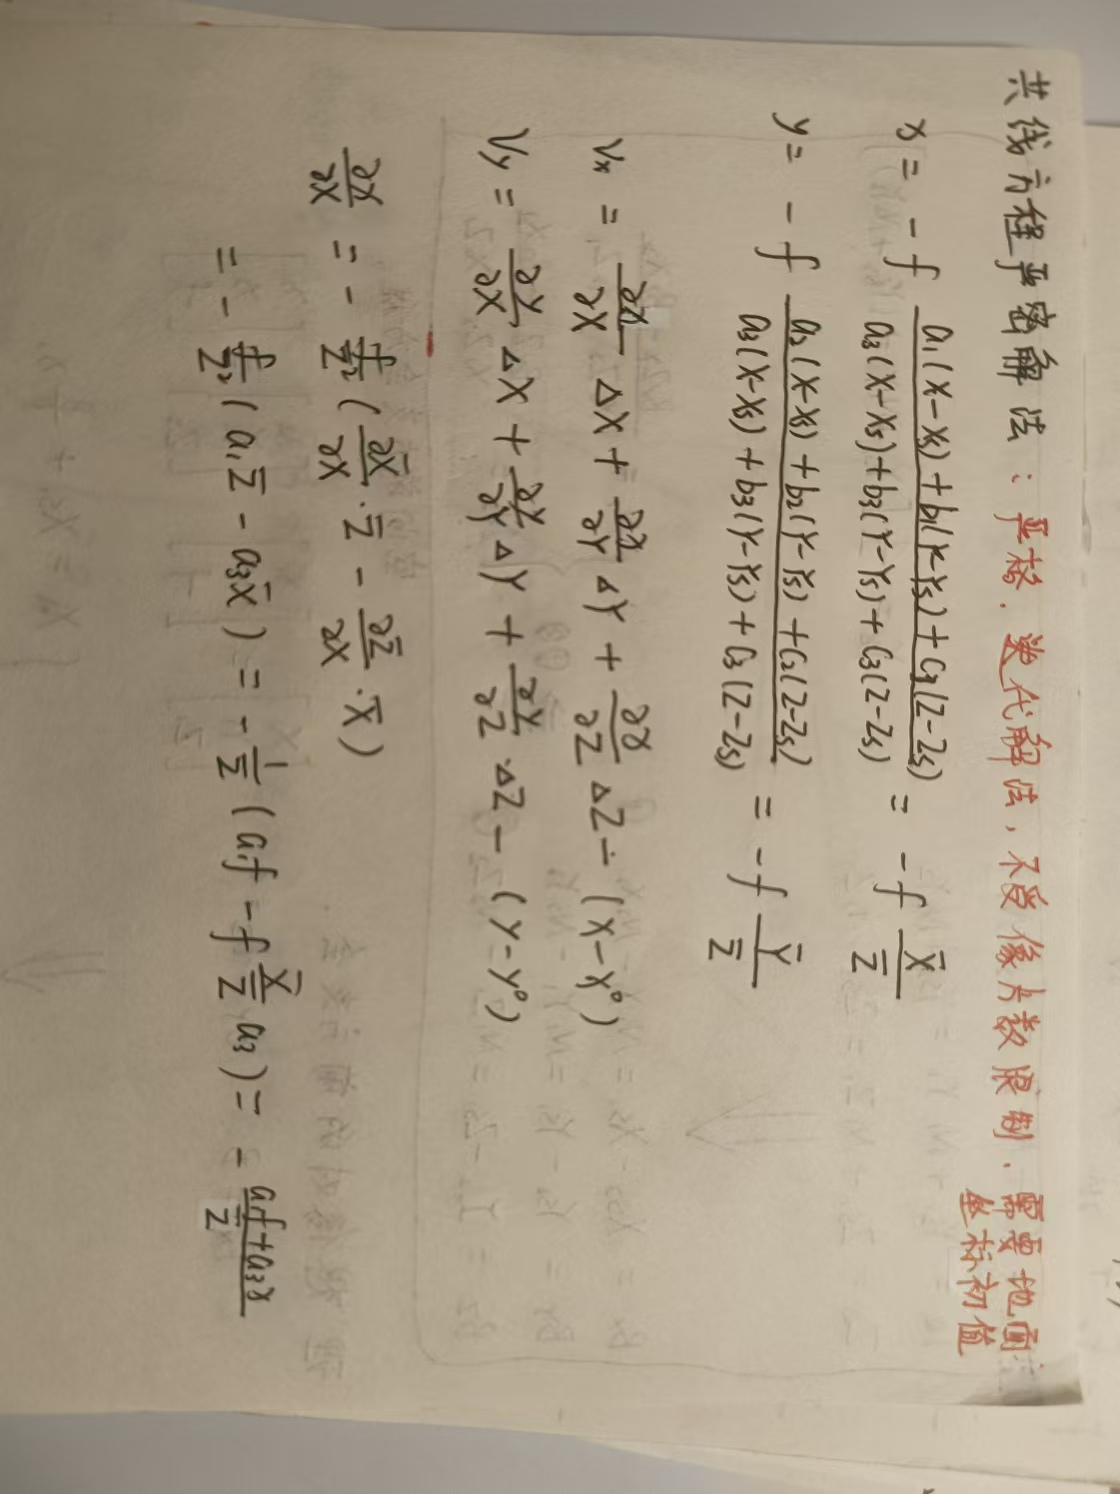 共线方程严密解法：严格. 迭代解法，不受像片数限制. 需要地面坐标初值
x = -f \frac{a₁(X-Xs)+b₁(Y-Ys)+C₁(Z-Zs)}{a₃(X-Xs)+b₃(Y-Ys)+C₃(Z-Zs)} = -f \frac{X̄}{Z̄}
y = -f \frac{a₂(X-Xs)+b₂(Y-Ys)+C₂(Z-Zs)}{a₃(X-Xs)+b₃(Y-Ys)+C₃(Z-Zs)} = -f \frac{Ȳ}{Z̄}
Vx = \frac{∂x}{∂X} ΔX + \frac{∂x}{∂Y} ΔY + \frac{∂x}{∂Z} ΔZ - (x-x⁰)
Vy = \frac{∂y}{∂X} ΔX + \frac{∂y}{∂Y} ΔY + \frac{∂y}{∂Z} ·ΔZ - (y-y⁰)
\frac{∂x}{∂X} = - \frac{f}{Z̄²} ( \frac{∂X̄}{∂X} · Z̄ - \frac{∂Z̄}{∂X} · X̄ )
= - \frac{f}{Z̄²} ( a₁Z̄ - a₃X̄ ) = - \frac{1}{Z̄} ( a₁f - f \frac{X̄}{Z̄} a₃ ) = - \frac{a₁f+a₃x}{Z̄}